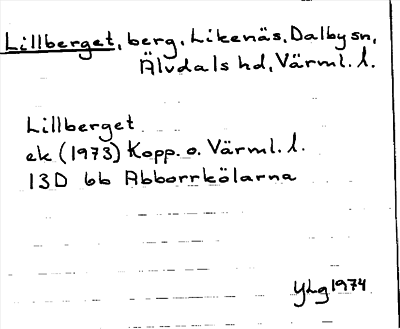 Lillberget, berg, Likenäs, Dalby sn,
Älvdals hd, Värml. l.
Lillberget
ek (1973) Kopp. o. Värml. l.
13D 6b Abborrkölarna
YLg 1974